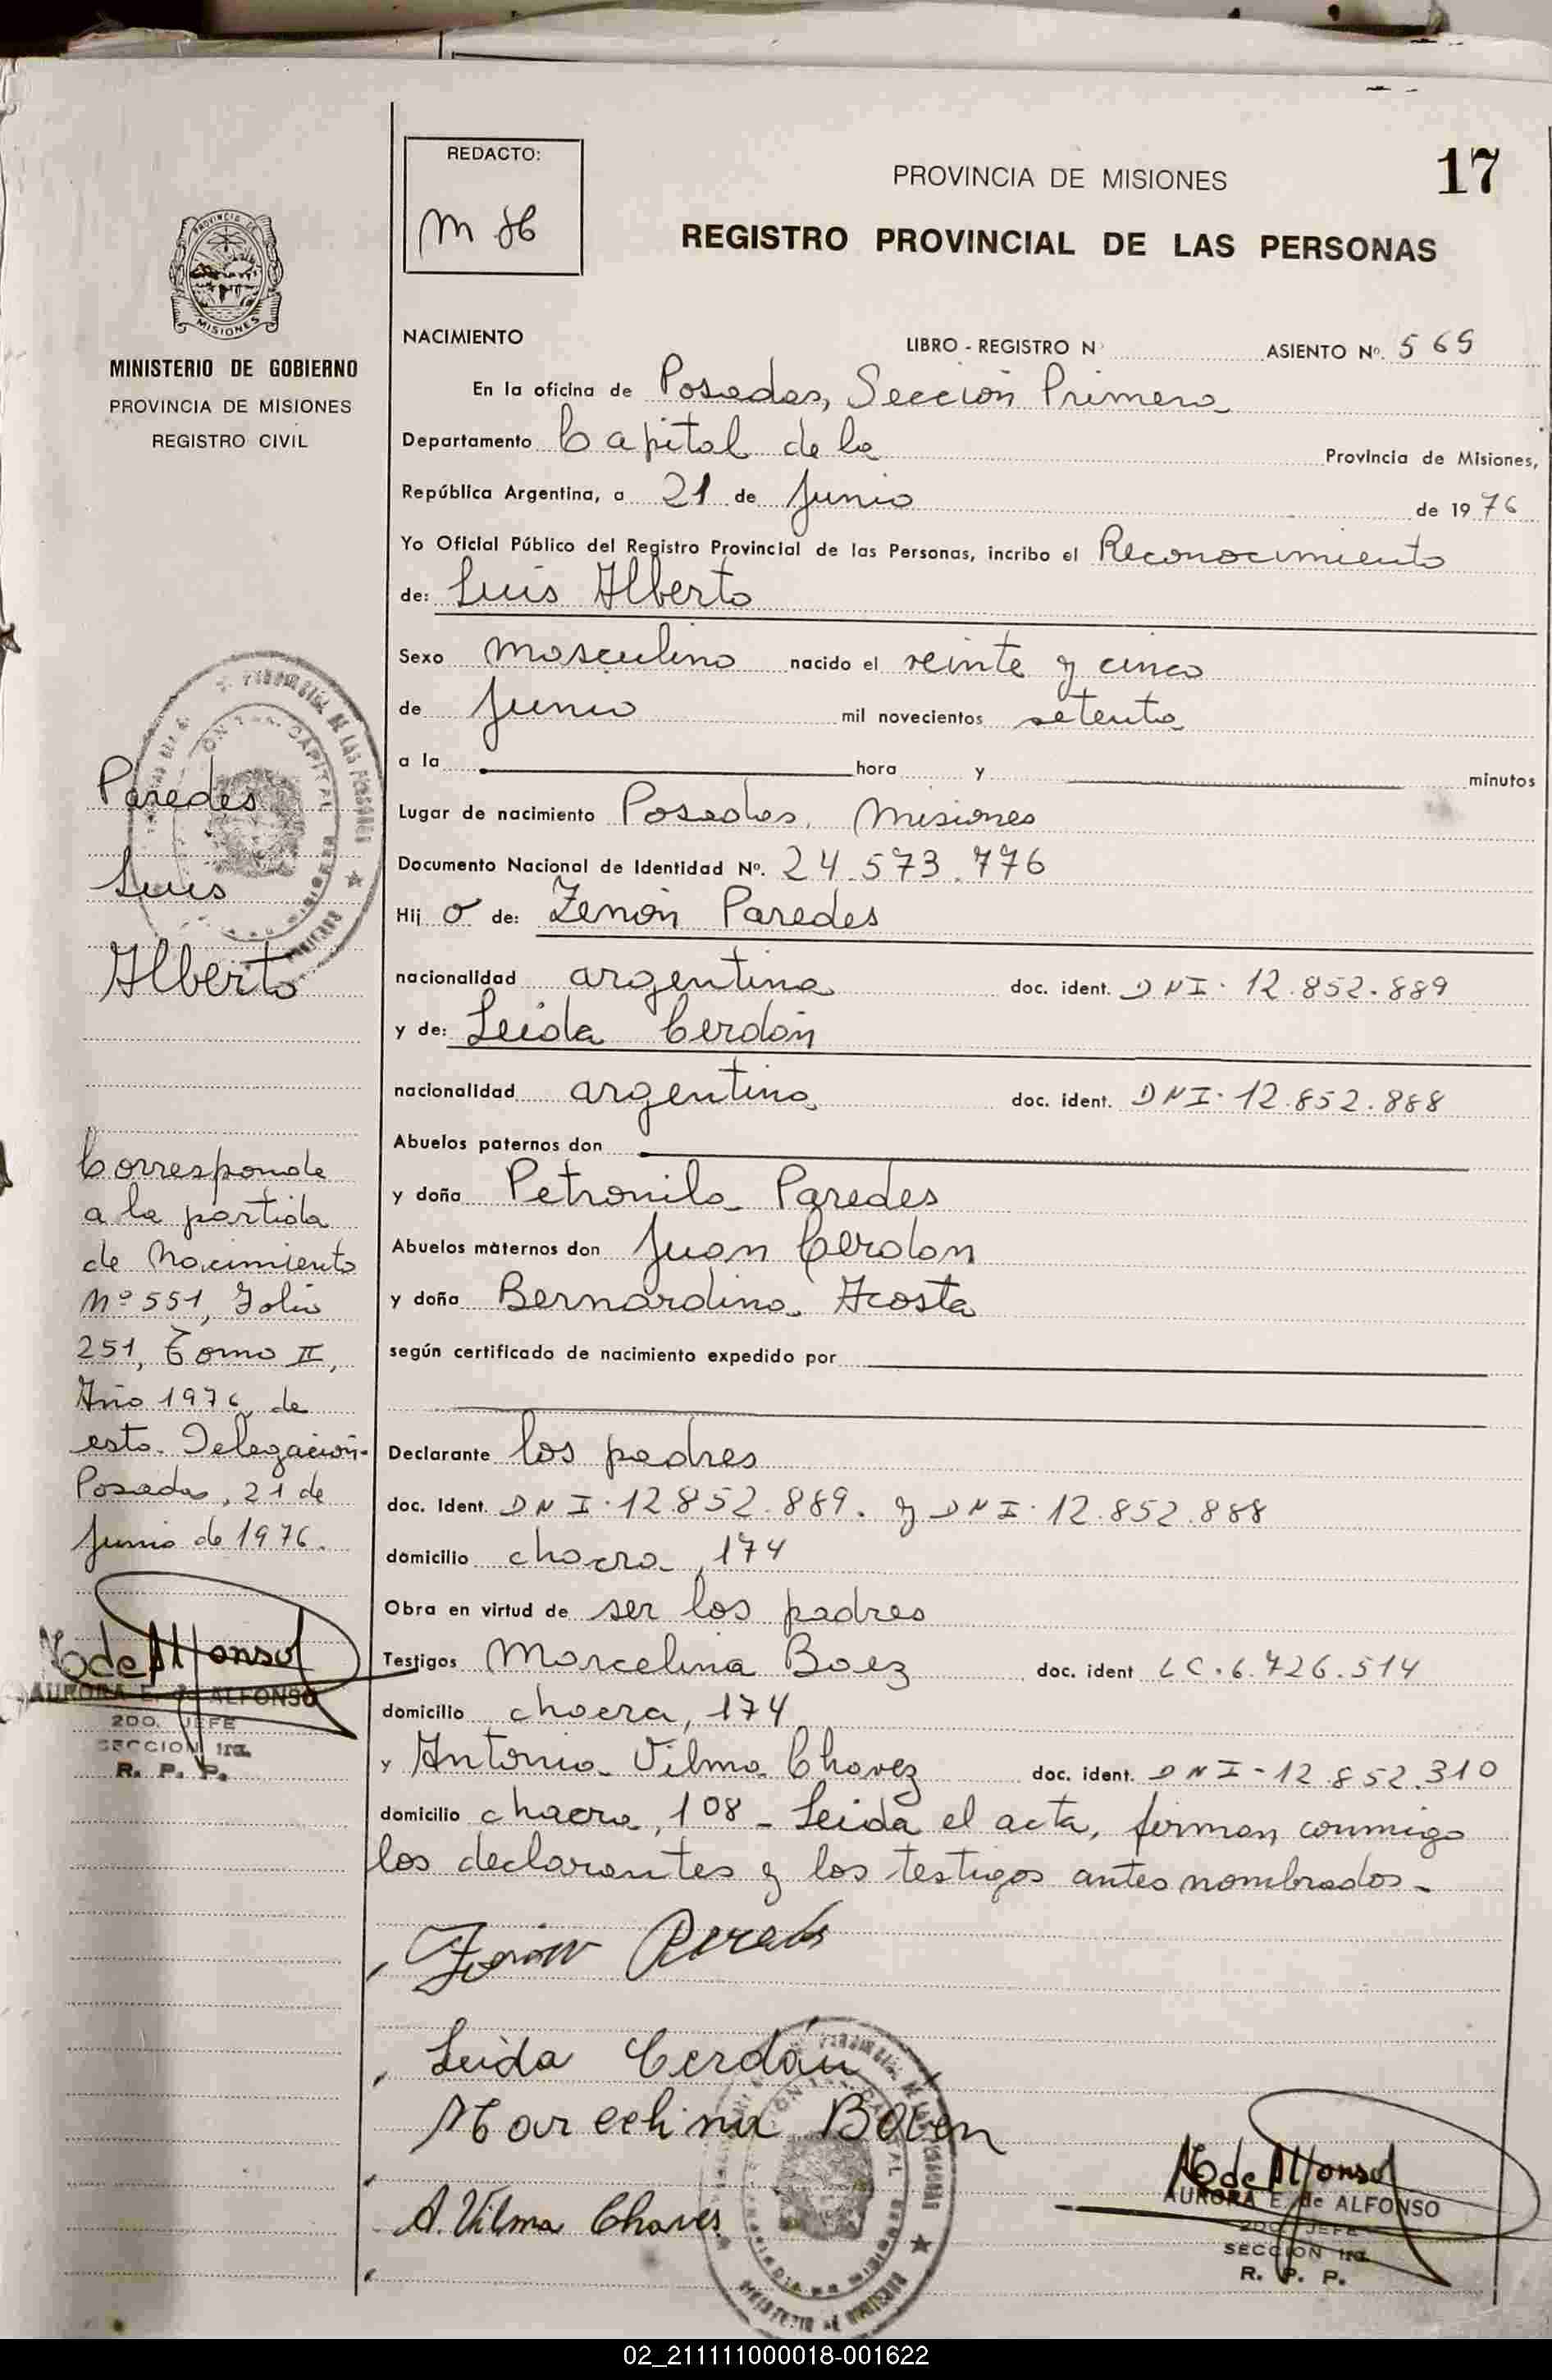 17
REDACTO:
M H
PROVINCIA DE MISIONES
REGISTRO PROVINCIAL DE LAS PERSONAS
MISIONES
MINISTERIO DE GOBIERNO
PROVINCIA DE MISIONES
REGISTRO CIVIL
NACIMIENTO LIBRO - REGISTRO N° ASIENTO Nº. 569
En la oficina de Posadas, Sección Primera
Departamento Capital de la Provincia de Misiones,
República Argentina, a 21 de Junio de 1976
Yo Oficial Público del Registro Provincial de las Personas, incribo el Reconocimiento
de: Luis Alberto
Sexo masculino nacido el veinte y cinco
de Junio mil novecientos setenta
a la hora y minutos
Lugar de nacimiento Posadas, Misiones
Documento Nacional de Identidad Nº. 24.573.776
Hij o de: Zenón Paredes
nacionalidad argentina doc. ident. DNI. 12.852.889
y de: Leida Cerdán
nacionalidad argentina doc. ident. DNI. 12.852.888
Abuelos paternos don
y doña Petronila Paredes
Abuelos maternos don Juan Cerdan
y doña Bernardina Acosta
según certificado de nacimiento expedido por
Declarante los padres
doc. Ident. DNI. 12.852.889. y DNI. 12.852.888
domicilio chacra, 174
Obra en virtud de ser los padres
Testigos Marcelina Baez doc. ident LC. 6.726.514
domicilio chacra, 174
y Antonia Vilma Chavez doc. ident. DNI - 12.852.310
domicilio chacra, 108 - Leida el acta, firman conmigo
los declarantes y los testigos antes nombrados.
Paredes
Luis
Alberto
Corresponde
a la partida
de Nacimiento
Nº 551, Folio
251, Tomo II,
Año 1976 de
esta Delegación.
Posadas, 21 de
Junio de 1976.
AURORA E. de ALFONSO
2DO. JEFE
SECCION 1ra.
R. P. P.
Leida Cerdán
A. Vilma Chaves
AURORA E. de ALFONSO
2DO. JEFE
SECCION 1ra.
R. P. P.
02_211111000018-001622